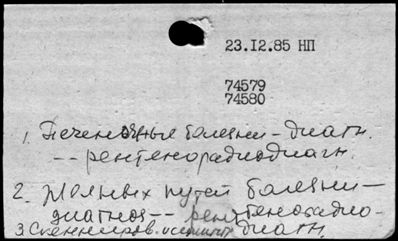 23.I2.85 НП
74579
74580
1. Печеночные болезни - диагн.
-- рентгенорадиодиагн.
2. Желчных путей болезни -
диагноз -- рентгенорадио-
3. Сканниров. диагн.